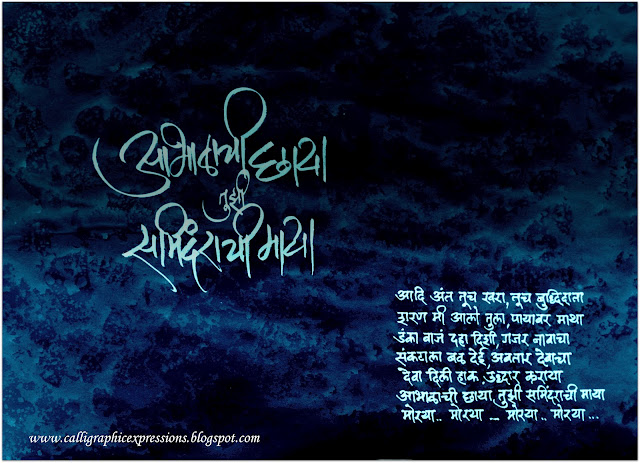 आभाळाची छाया
तुझी
समिंदराची माया
आदि अंत तूच खरा, तूच बुद्धिदाता
शरण मी आलो तुला, पायावर माथा
डंका वाजं दहा दिशी, गजर नावाचा
संकटाला बळ देई, अवतार देवाचा
देवा दिली हाक उद्धार कराया
आभाळाची छाया, तुझी समिंदराची माया
मोरया.. मोरया ... मोरया .. मोरया ...
www.calligraphicexpressions.blogspot.com